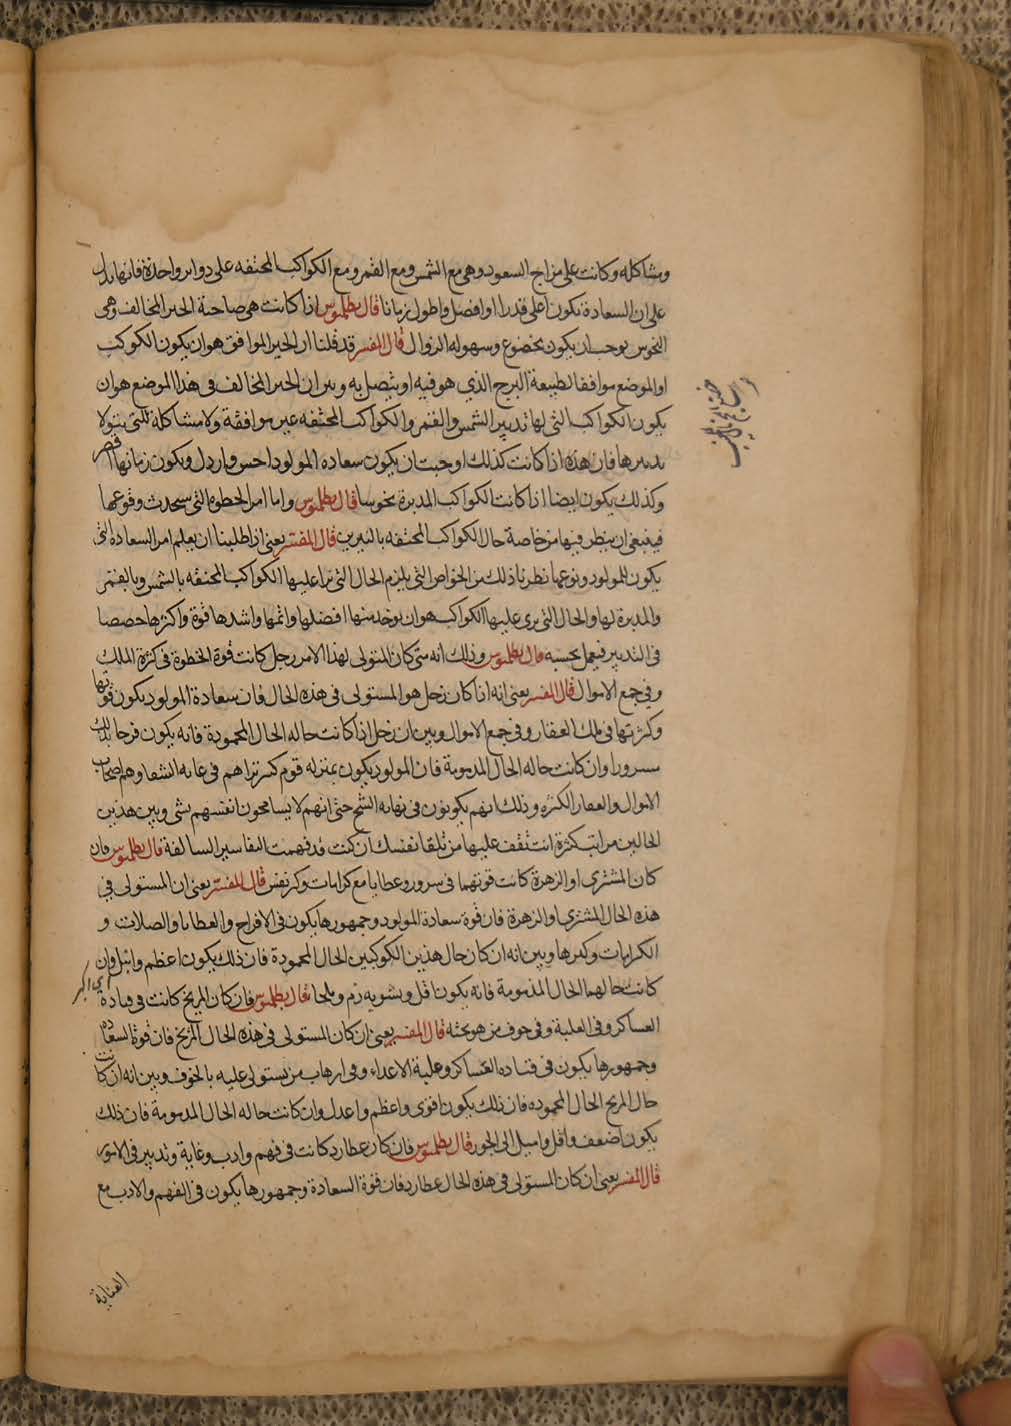 ومشاكله وكانت على مزاج السعود وهي مع الشمس ومع القمر ومع الكواكب المحتفه على دوابر واحدة فانها يدل
على ان السعادة تكون اعلى قدرا او افضل واطول زمانا قال بطلميوس اذا كانت هي صاحبة الحيز المخالف وهي
النحوس يوجب ان يكون بخضوع وسهوله الزوال قال المفسر قد قلنا ان الحيز الموافق هو ان يكون الكوكب
او الموضع موافقا لطبيعة البرج الذي هو فيه او يتصل به وبين ان الحيز المخالف في هذا الموضع هو ان
يكون الكواكب التي لها تدبير الشمس والقمر والكواكب المحتفه غير موافقة ولا مشاكلة للتي يتولا
تدبيرها فان هذه اذا كانت كذلك اوجبت ان يكون سعاده المولود اخس وارذل ويكون زمانها اقصر
وكذلك يكون ايضا اذا كانت الكواكب المدبرة نحوسا قال بطلميوس واما امر الحظوه التي سيحدث وقوعها
فينبغي ان ينظر فيها من خاصة حال الكواكب المحتفه بالنيرين قال المفسر يعني اذا طلبنا ان يعلم امر السعادة التي
يكون للمولود ونوعها نظرنا ذلك من الخواص التي يلزم الحال التي ترا عليها الكواكب المحتفه بالشمس وبالقمر
والمدبرة لها والحال التي يرى عليها الكواكب هو ان يوخد منها افضلها واتمها واشدها قوة واكثرها حصصا
في التدبير فيعمل بحسبه قال بطلميوس وذلك انه متى كان المتولى لهذا الامر زحل كانت قوة الحظوة في كثرة الملك
وفي جمع الاموال قال المفسر يعني انه اذا كان زحل هو المستولى في هذه الحال فان سعادة المولود يكون قوتها
وكثرتها في ملك العقار وفي جمع الاموال وبين ان زحل اذا كانت حاله الحال المحمودة فانه يكون فرحا بذلك
مسرورا وان كانت حاله الحال المذمومة فان المولود يكون بمنزله قوم كثير تراهم في غايه الشقا وهم اصحاب
الاموال والعقار الكثره وذلك انهم يكونون في نهاية الشح حتى انهم لا يسامحون انفسهم بشى وبين هذين
الحالين مراتب كثرة انت تقف عليها من تلقا نفسك ان كنت قد فهمت التفاسير السالفة قال بطلميوس فان
كان المشتري او الزهرة كانت قوتهما في سرور وعطايا مع كرامات وكبر نفس قال المفسر يعني ان المستولى في
هذه الحال المشترى او الزهرة فان قوة سعادة المولود وجمهورها يكون في الافراح والعطايا والصلات و
الكرامات وكبرها وبين انه ان كان حال هذين الكوكبين الحال المحمودة فان ذلك يكون اعظم وانبل وان
كانت حالهما الحال المذمومة فانه يكون اقل ويشوبه قال بطلميوس فان كان المريخ كانت في قيادة
العساكر وفي الغلبة وفي خوف من هو تحته قال المفسر يعني ان كان المستولى في هذه الحال المريخ فان قوة السعادة
وجمهورها يكون في قياده العساكر وغلبة الاعداء وفي ارهاب من يستولى عليه بالخوف وبين انه ان كانت
حال المريخ الحال المحموده فان ذلك يكون اقوى واعظم واعدل وان كانت حاله الحال المذمومة فان ذلك
يكون اضعف واقل واميل الى الجور قال بطلميوس فان كان عطارد كانت في فهم وادب وغاية وتدبير في الامور
قال المفسر يعني ان كان المستولى في هذه الحال عطارد فان قوة السعادة وجمهورها يكون في الفهم والادب مع
العناية